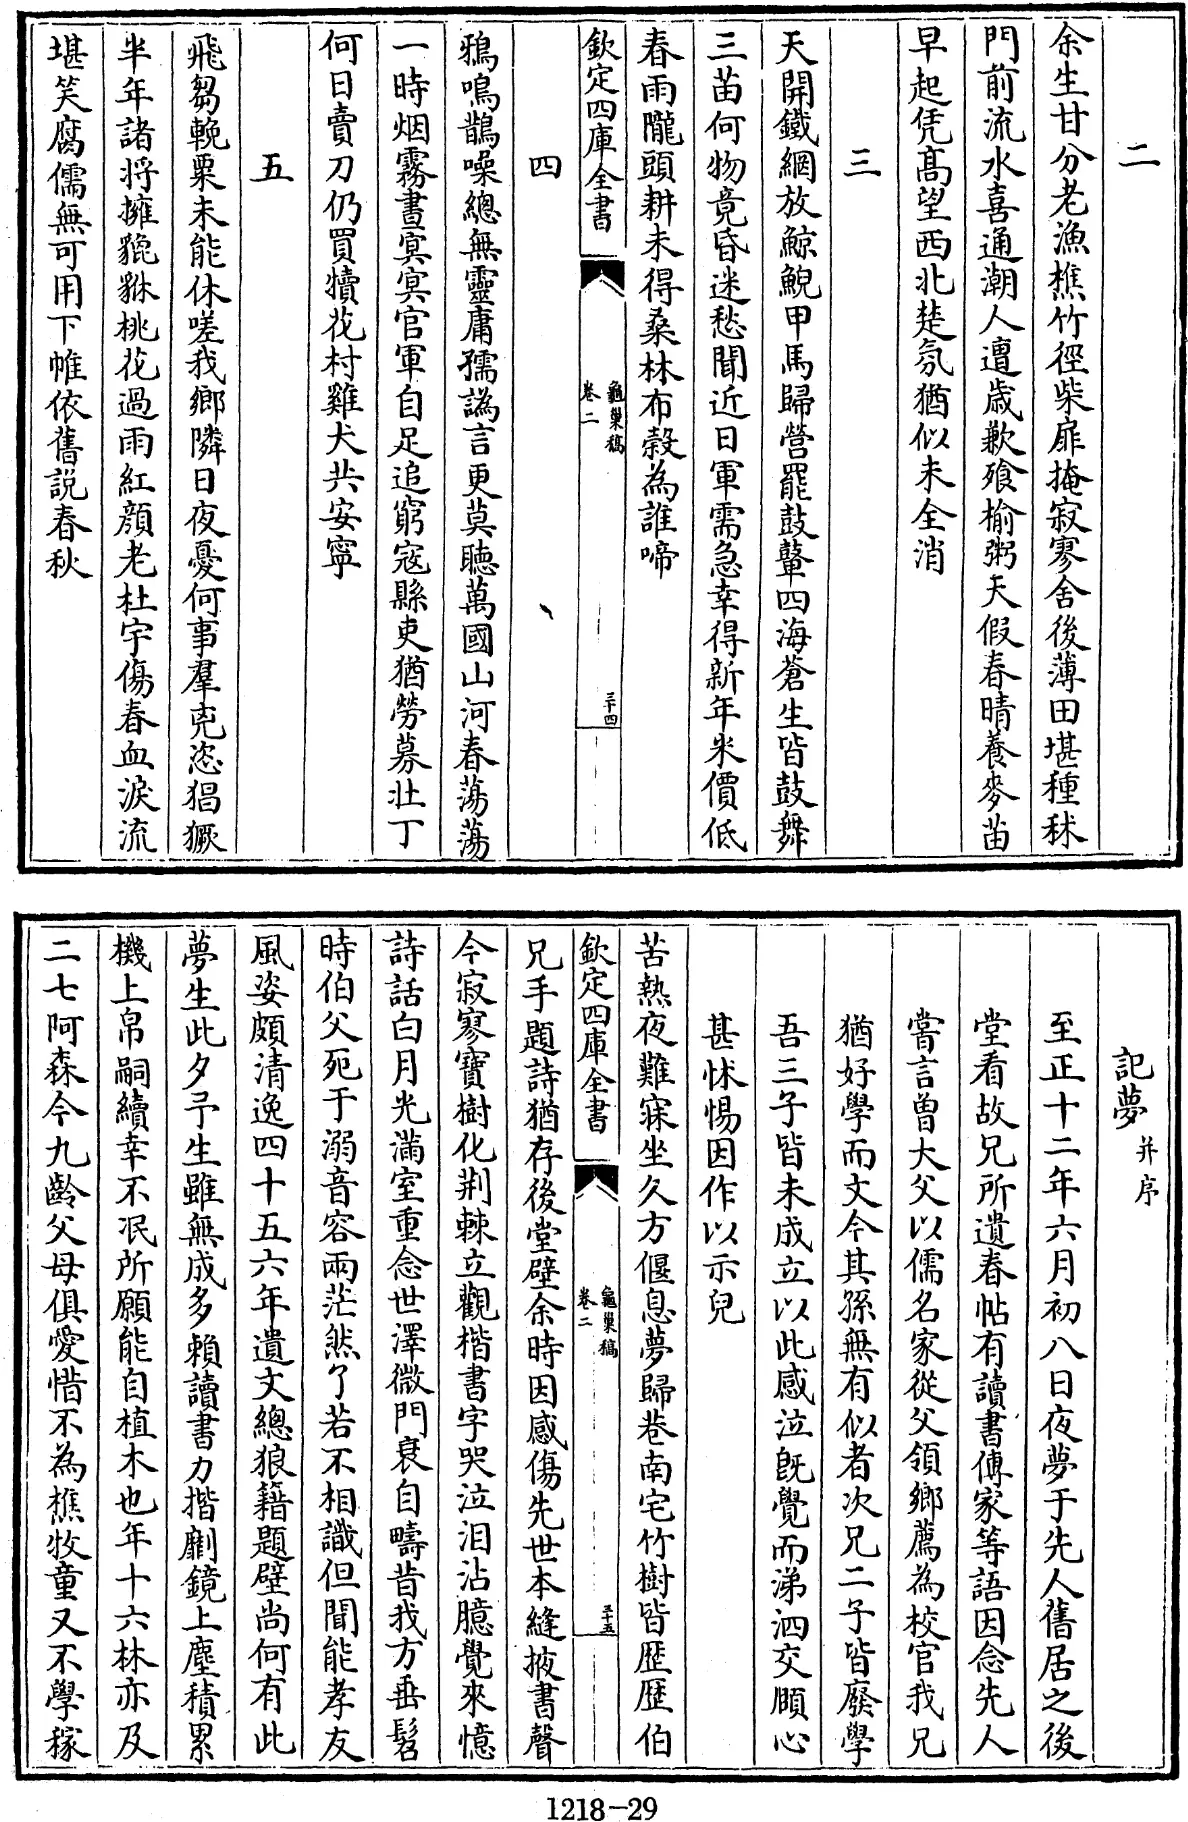 二
余生甘分老漁樵竹徑柴扉掩寂寥舍後薄田堪種秫
門前流水喜通潮人遭歲歉飱榆粥天假春晴養麥苗
早起凭髙望西北楚氛猶似未全消
三
天開鐵網放鯨鯢甲馬歸營罷鼓鼙四海蒼生皆鼓舞
三苗何物竟昏迷愁聞近日軍需急幸得新年米價低
春雨隴頭耕未得桑林布榖為誰啼
欽定四庫全書
龜巢稿
卷二
三十四
四
鴉鳴鵲噪總無靈庸孺譌言更莫聽萬國山河春蕩蕩
一時烟霧晝冥冥官軍自足追窮寇縣吏猶勞募壮丁
何日賣刀仍買犢花村雞犬共安寧
五
飛芻輓粟未能休嗟我鄉隣日夜憂何事羣兇恣猖獗
半年諸将擁貔貅桃花過雨紅顔老杜宇傷春血淚流
堪笑腐儒無可用下帷依舊説春秋
記夢并序
至正十二年六月初八日夜夢于先人舊居之後
堂看故兄所遺春帖有讀書傳家等語因念先人
嘗言曽大父以儒名家從父領鄉薦為校官我兄
猶好學而文今其孫無有似者次兄二子皆廢學
吾三子皆未成立以此感泣旣覺而涕泗交頥心
甚怵惕因作以示兒
苦熱夜難寐坐久方偃息夢歸巷南宅竹樹皆歴歴伯
欽定四庫全書
龜巢稿
卷二
三十五
兄手題詩猶存後堂壁余時因感傷先世本縫掖書聲
今寂寥寶樹化荆棘立觀楷書字哭泣泪沾臆覺來憶
詩話白月光滿室重念世澤微門衰自疇昔我方垂髫
時伯父死于溺音容兩茫然了若不相識但聞能孝友
風姿頗清逸四十五六年遺文總狼籍題壁尚何有此
夢生此夕予生雖無成多賴讀書力揩劘鏡上塵積累
機上帛嗣續幸不泯所願能自植木也年十六林亦及
二七阿森今九齡父母俱愛惜不為樵牧童又不學稼
1218-29